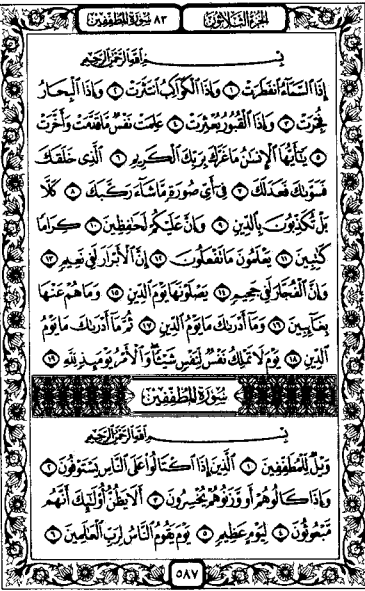 الجزء الثلاثون
٨٣ سورة المطففين
بسم الله الرحمن الرحيم
إِذَا السَّمَاءُ انفَطَرَتْ ١ وَإِذَا الْكَوَاكِبُ انتَثَرَتْ ٢ وَإِذَا الْبِحَارُ
فُجِّرَتْ ٣ وَإِذَا الْقُبُورُ بُعْثِرَتْ ٤ عَلِمَتْ نَفْسٌ مَّا قَدَّمَتْ وَأَخَّرَتْ
٥ يَا أَيُّهَا الْإِنسَانُ مَا غَرَّكَ بِرَبِّكَ الْكَرِيمِ ٦ الَّذِي خَلَقَكَ
فَسَوَّاكَ فَعَدَلَكَ ٧ فِي أَيِّ صُورَةٍ مَّا شَاءَ رَكَّبَكَ ٨ كَلَّا
بَلْ تُكَذِّبُونَ بِالدِّينِ ٩ وَإِنَّ عَلَيْكُمْ لَحَافِظِينَ ١٠ كِرَامًا
كَاتِبِينَ ١١ يَعْلَمُونَ مَا تَفْعَلُونَ ١٢ إِنَّ الْأَبْرَارَ لَفِي نَعِيمٍ ١٣
وَإِنَّ الْفُجَّارَ لَفِي جَحِيمٍ ١٤ يَصْلَوْنَهَا يَوْمَ الدِّينِ ١٥ وَمَا هُمْ عَنْهَا
بِغَائِبِينَ ١٦ وَمَا أَدْرَاكَ مَا يَوْمُ الدِّينِ ١٧ ثُمَّ مَا أَدْرَاكَ مَا يَوْمُ
الدِّينِ ١٨ يَوْمَ لَا تَمْلِكُ نَفْسٌ لِّنَفْسٍ شَيْئًا وَالْأَمْرُ يَوْمَئِذٍ لِّلَّهِ ١٩
سورة المطففين
بسم الله الرحمن الرحيم
وَيْلٌ لِّلْمُطَفِّفِينَ ١ الَّذِينَ إِذَا اكْتَالُوا عَلَى النَّاسِ يَسْتَوْفُونَ ٢
وَإِذَا كَالُوهُمْ أَو وَّزَنُوهُمْ يُخْسِرُونَ ٣ أَلَا يَظُنُّ أُولَٰئِكَ أَنَّهُم
مَّبْعُوثُونَ ٤ لِيَوْمٍ عَظِيمٍ ٥ يَوْمَ يَقُومُ النَّاسُ لِرَبِّ الْعَالَمِينَ ٦
٥٨٧